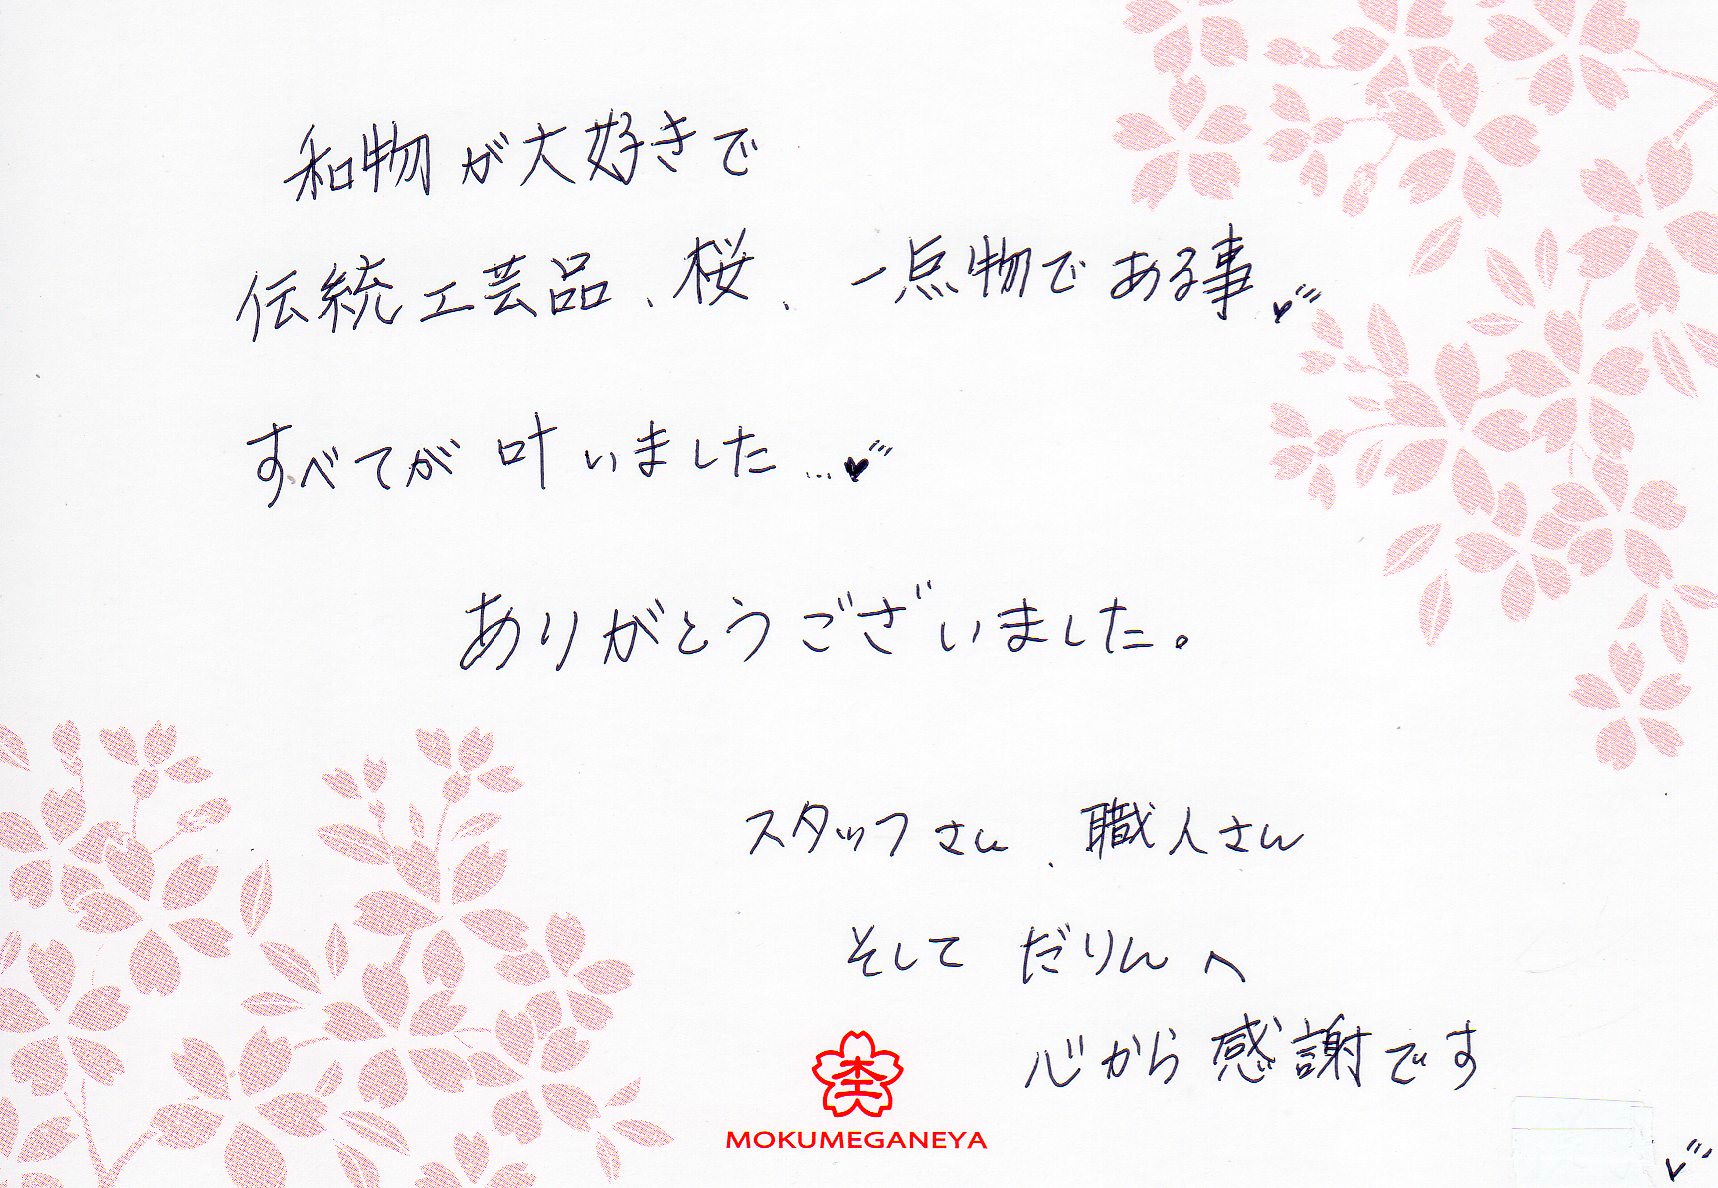 和物が大好きで
伝統工芸品、桜、一点物である事
すべてが叶いました…
ありがとうございました。
スタッフさん、職人さん
そして だりんへ
心から感謝です
MOKUMEGANEYA